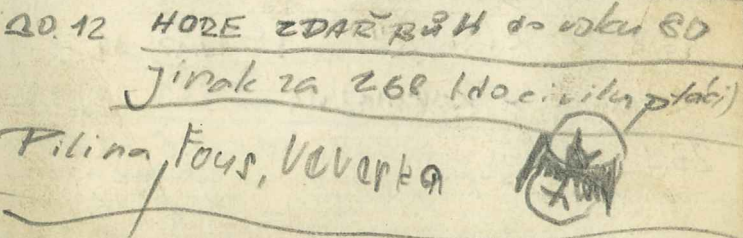 20.12 HOŘE ZDAŘ BŮH do roku 80
jinak za 268 (do civilu ptáci)
Pilina, Fous, Veverka